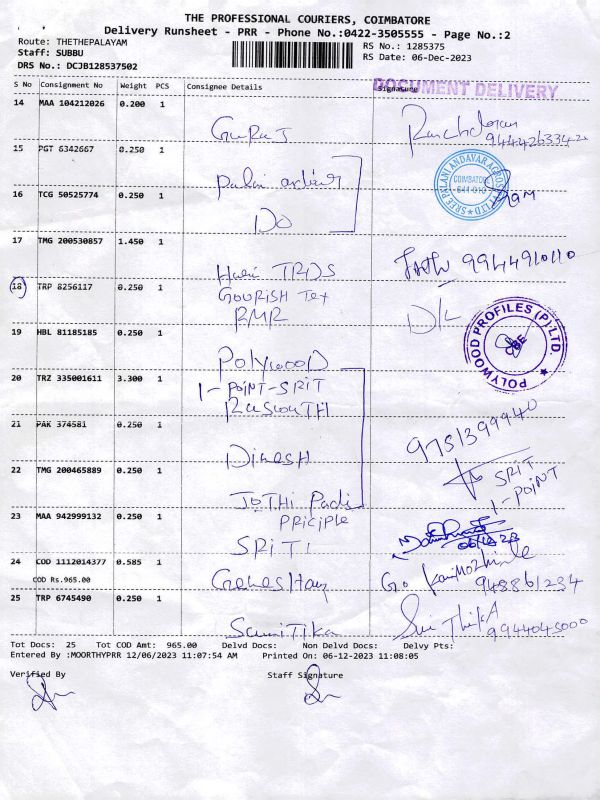 THE PROFESSIONAL COURIERS, COIMBATORE
Delivery Runsheet - PRR - Phone No.:0422-3505555 - Page No.:2
Route: THETHEPALAYAM
RS No.: 1285375
Staff: SUBBU
RS Date: 06-Dec-2023
DRS No.: DCJB128537502
DOCUMENT DELIVERY
S No Consignment No Weight PCS Consignee Details Signature
14 MAA 104212026 0.200 1
944426334
15 PGT 6342667 0.250 1
Palani
SREE PALANI ANDAVAR AGRO (P) LTD
COIMBATORE
16 TCG 50525774 0.250 1
Do
17 TMG 200530857 1.450 1
Hari TRDS
9944910110
18 TRP 8256117 0.250 1
GOURISH Tex
RMR
D/L
POLYWOOD PROFILES (P) LTD
19 HBL 81185185 0.250 1
POLYWOOD
20 TRZ 335001611 3.300 1
1-POINT-SRIT
21 PAK 374581 0.250 1
9751399940
Dinesh
22 TMG 200465889 0.250 1
SRIT
1-POINT
JOTHI
23 MAA 942999132 0.250 1
PRICIPLE
SRIT
24 COD 1112014377 0.585 1
COD Rs.965.00
948861234
25 TRP 6745490 0.250 1
9944045000
Tot Docs: 25 Tot COD Amt: 965.00 Delvd Docs: Non Delvd Docs: Delvy Pts:
Entered By :MOORTHYPRR 12/06/2023 11:07:54 AM Printed On: 06-12-2023 11:08:05
Verified By Staff Signature